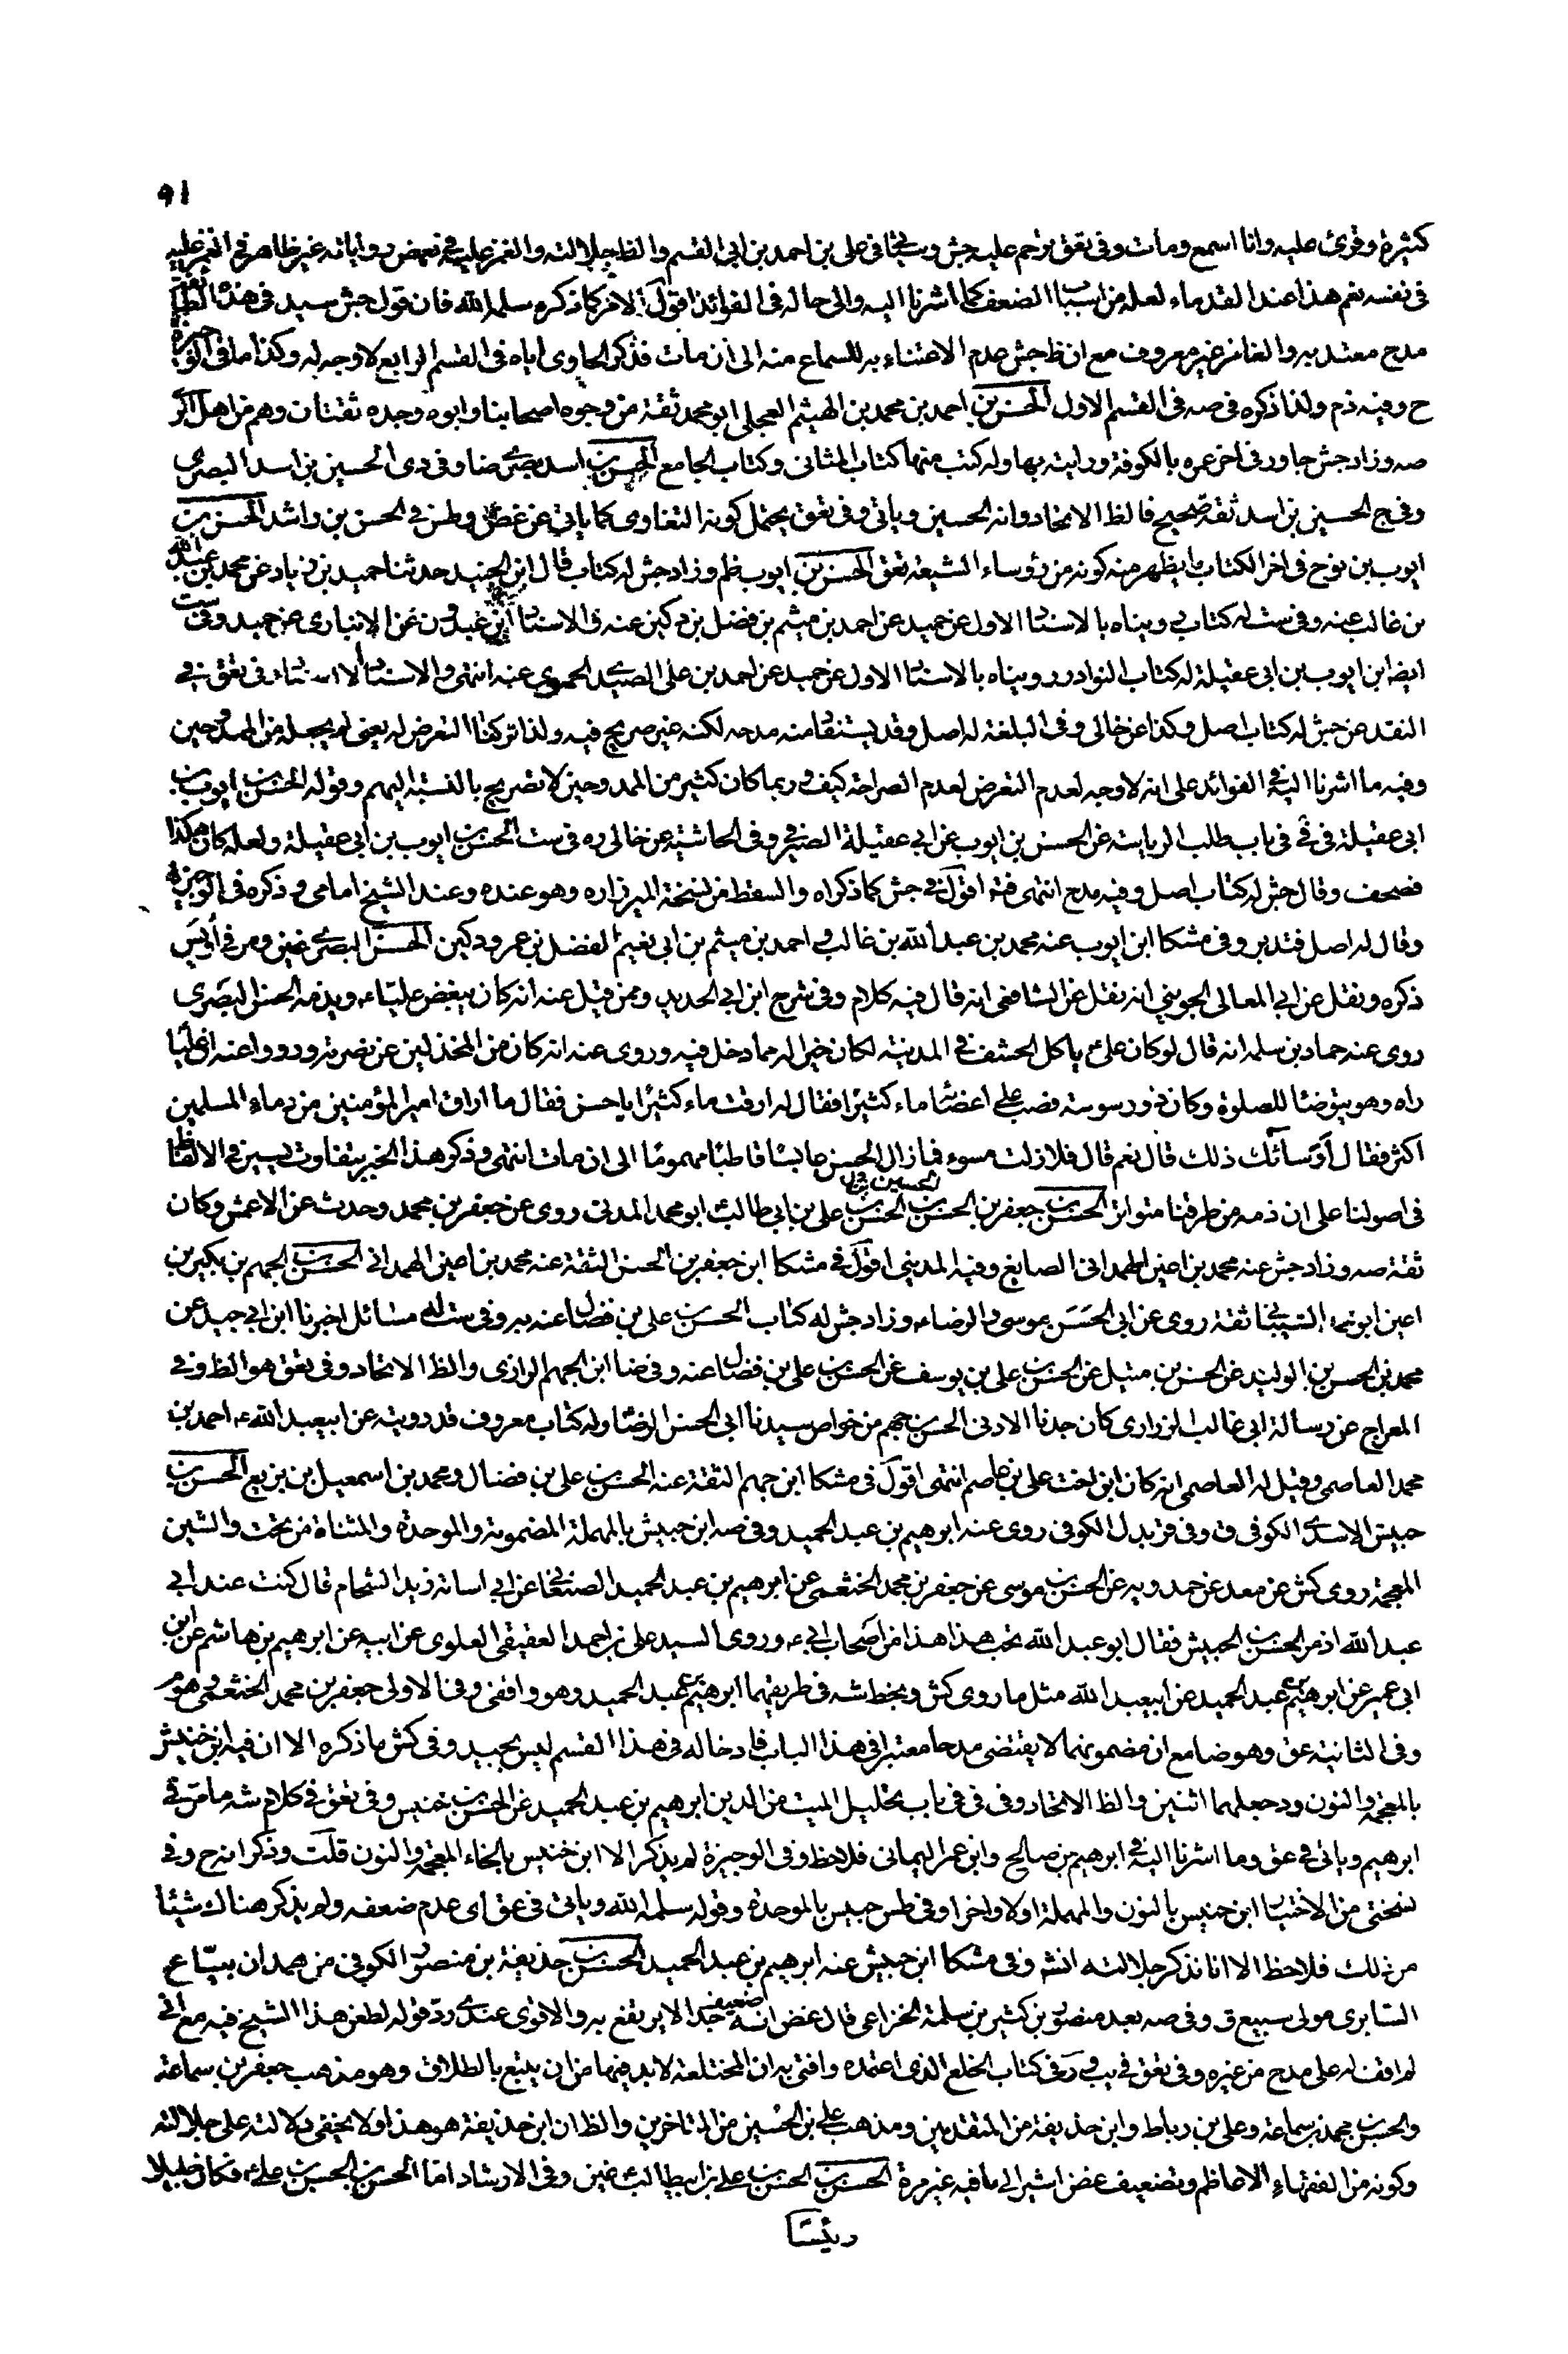 ٩١
كثيرة وقرئ عليه وانا اسمع ومات وفى تعق ترحم عليه جش وسيجئ فى على بن احمد بن ابى القسم والظ جلالته والغمز عليه فى بعض رواياته غير ظاهر فى الغمز عليه
فى نفسه نعم هذا عند القدماء لعله من اسباب الضعف كما اشرنا اليه والى حاله فى الفوائد اقول الامر كما ذكره سلمه الله فان قول جش سيد فى هذه الطائفة
مدح معتد به والغامز غير معروف مع ان ظ جش عدم الاعتناء به للسماع منه الى ان مات فذكر الحاوى اياه فى القسم الرابع لا وجه له وكذا ما فى الوجيزة
ح وفيه ذم ولذا ذكره فى صه فى القسم الاول الحسن بن احمد بن محمد بن الهيثم العجلى ابو محمد ثقة من وجوه اصحابنا وابوه وجده ثقتان وهم من اهل الرى
صه وزاد جش جاور فى اخر عمره بالكوفة ورايته بها وله كتب منها كتاب المثانى وكتاب الجامع الحسن بن اسد بصرى ضا وفى دى الحسين بن اسد البصرى
وفى ج الحسين بن اسد ثقة صحيح فالظ الاتحاد وانه الحسين وياتى وفى تعق يحتمل كونه التفاوى كما ياتى عن غض وطس فى الحسن بن راشد الحسن بن
ايوب بن نوح فى اخر الكتاب ما يظهر منه كونه من رؤساء الشيعة تعق الحسن بن ايوب ظم وزاد جش له كتاب قال ابن الجنيد حدثنا حميد بن زياد عن محمد بن عبد الله
بن غالب عنه وفى ست له كتاب رويناه بالاسناد الاول عن حميد عن احمد بن ميثم بن فضل بن دكين عنه والاسناد ابن عبدون عن الانبارى عن حميد وفى ست
ايضا ابن ايوب بن ابى عقيلة له كتاب النوادر رويناه بالاسناد الاول عن حميد عن احمد بن على الصيدى الحموى عنه انتهى والاسناد الاسناد وفى تعق فى
النقد عن جش له كتاب اصل وكذا عن خالى وفى البلغة له اصل وقد يستفاد منه مدحه لكنه غير صريح فيه ولذا تركنا التعرض له يعنى لم يجعله من الممدوحين
وفيه ما اشرنا اليه فى الفوائد على انه لا وجه لعدم التعرض لعدم الصراحة كيف وربما كان كثير من الممدوحين لا تصريح بالنسبة اليهم وقوله الحسن بن ايوب بن
ابى عقيلة فى فى فى باب طلب الرياسة عن الحسن بن ايوب عن ابى عقيلة الصيرفى وفى الحاشية عن خالى ره فى ست الحسن بن ايوب بن ابى عقيلة ولعله كان هكذا
فصحف وقال جش له كتاب اصل وفيه مدح انتهى فت اقول فى جش كما ذكراه والسقط من نسخة الميرزا ره وهو عنده وعند الشيخ امامى وذكره فى الوجيزة
وقال له اصل فتدبر وفى مشكا ابن ايوب عنه محمد بن عبد الله بن غالب واحمد بن ميثم بن ابى نعيم الفضل بن عمرو دكين الحسن البصرى غير ومر فى أويس
ذكره ونقل عن ابى المعالى الجوينى انه نقل عن الشافعى انه قال فيه كلام وفى شرح ابن ابى الحديد وممن قيل عنه انه كان يبغض عليا ع ويذمه الحسن البصرى
روى عنه حماد بن سلمه انه قال لو كان على ع ياكل الحشف فى المدينة لكان خيرا له مما دخل فيه وروى عنه انه كان من المخذلين عن نصرته ورووا عنه ان عليا
راه وهو يتوضأ للصلوة وكان ذو وسوسة فصب على اعضائه ماء كثيرا فقال له ارقت ماء كثيرا يا حسن فقال ما اراق امير المؤمنين من دماء المسلمين
اكثر فقال أو ساءك ذلك قال نعم قال فلا زلت مسوء فما زال الحسن عابسا قاطبا مهموما الى ان مات انتهى وذكر هذا الخبر بتفاوت يسير فى الالفاظ
فى اصولنا على ان ذمه من طرقنا متواتر الحسن بن جعفر بن الحسن بن الحسن بن على بن ابى طالب ابو محمد المدنى روى عن جعفر بن محمد وحدث عن الاعمش وكان
ثقة صه وزاد جش عنه محمد بن اعين الهمدانى الصايغ وفيه المدينى اقول فى مشكا ابن جعفر بن الحسن الثقة عنه محمد بن اعين الهمدانى الحسن بن الجهم بن بكير بن
اعين ابو محمد الشيبانى ثقة روى عن ابى الحسن موسى والرضا ع وزاد جش له كتاب الحسن بن على بن فضال عنه به وفى ست له مسائل اخبرنا ابن ابى جيد عن
محمد بن الحسن بن الوليد عن الحسن بن متيل عن الحسن بن على بن يوسف عن الحسن بن على بن فضال عنه وفى ضا ابن الجهم الرازى والظ الاتحاد وفى تعق هو الظ وفى
المعراج عن رسالة ابى غالب الزرارى كان جدنا الادنى الحسن بن جهم من خواص سيدنا ابى الحسن الرضا وله كتاب معروف قد رويته عن ابيعبد الله ع احمد بن
محمد العاصمى وقيل له العاصمى انه كان ابن اخت على بن عاصم انتهى اقول فى مشكا ابن جهم الثقة عنه الحسن بن على بن فضال ومحمد بن اسمعيل بن بزيع الحسن بن
حبيش الاسدى الكوفى ق وفى قر بدل الكوفى روى عنه ابرهيم بن عبد الحميد وفى صه ابن حبيش بالمهملة المضمومة والموحدة والمثناة من تحت والشين
المعجمة روى كش عن معد عن حمدويه عن الحسن بن موسى عن جعفر بن محمد الخثعمى عن ابرهيم بن عبد الحميد الصنعانى عن ابى اسامة زيد الشحام قال كنت عند ابى
عبد الله اذ مر الحسن بن الحبيش فقال ابو عبد الله تحب هذا هذا من اصحاب ابى ع وروى السيد على بن احمد العقيقى العلوى عن ابيه عن ابرهيم بن هاشم عن ابن
ابى عمير عن ابرهيم بن عبد الحميد عن ابيعبد الله مثل ما روى كش وبخط شه فى طريقهما ابرهيم بن عبد الحميد وهو واقفى وفى الاولى جعفر بن محمد الخثعمى وهو م
وفى الثانية عق وهو ضا مع ان مضمونهما لا يقتضى مدحا معتبرا فى هذا الباب فادخاله فى هذا القسم ليس بجيد وفى كش ما ذكره الا ان فيه ابن خنيش
بالمعجمة والنون ود جعلهما اثنين والظ الاتحاد وفى فى فى باب تحليل الميت من الدين ابرهيم بن عبد الحميد عن الحسن بن خنيس وفى تعق فى كلام شه ما مر فى
ابرهيم وياتى فى عق وما اشرنا اليه فى ابرهيم بن صالح وابن عمر اليمانى فلاحظ وفى الوجيزة لم يذكر الا ابن خنيس بالخاء المعجمة والنون قلت وذكر انه ح وفى
نسختى من الاختيار ابن حنيس بالنون والمهملة اولا واخرا وفى طس حبيس بالموحدة وقوله سلمه الله وياتى فى عق اى عدم ضعفه ولم يذكر هناك شيئا
من ذلك فلاحظ الا انا نذكر جلالته انش وفى مشكا ابن حبيش عنه ابرهيم بن عبد الحميد الحسن بن حذيفة بن منصور الكوفى من همدان بياع
السابرى مولى سبيع ق وفى صه بعد منصور بن كثير بن سلمة الخزاعى قال غض انه ضعيف جدا لا يرتفع به والاقوى عندى رد قوله لطعن هذا الشيخ فيه مع انى
لم اقف له على مدح من غيره وفى تعق فى يب و ر فى كتاب الخلع الذى اعتمده وافتى به ان المختلعة لابد فيها من ان يتبع بالطلاق وهو مذهب جعفر بن سماعة
والحسن بن محمد بن سماعة وعلى بن رباط وابن حذيفة من المتقدمين ومذهب على بن الحسين من المتاخرين والظ ان ابن حذيفة هو هذا ولا يخفى دلالته على جلالته
وكونه من الفقهاء الاعاظم وتضعيف غض اشير الى ما فيه غير مرة الحسن بن الحسن بن على بن ابيطالب غير وفى الارشاد اما الحسن بن الحسن بن على ع فكان جليلا
رئيسا